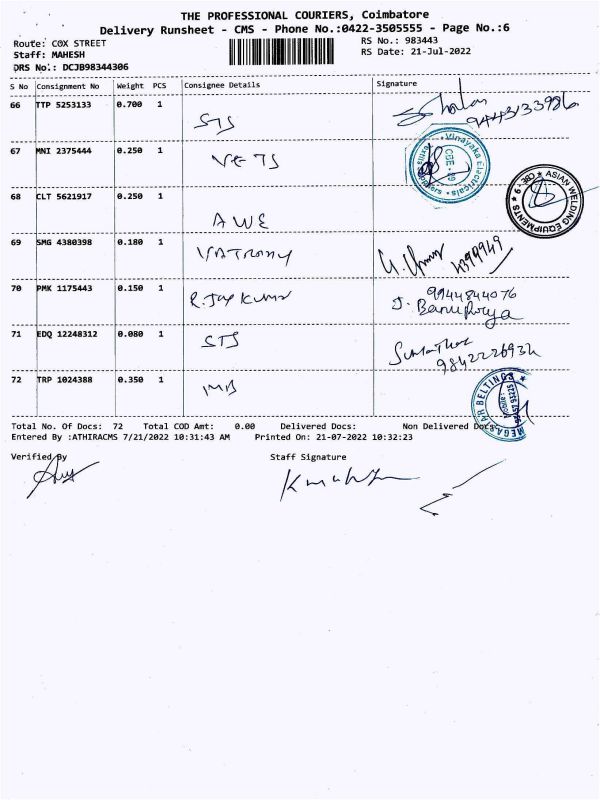 THE PROFESSIONAL COURIERS, Coimbatore
Delivery Runsheet - CMS - Phone No.:0422-3505555 - Page No.:6
Route: COX STREET RS No.: 983443
Staff: MAHESH RS Date: 21-Jul-2022
DRS No.: DCJB98344306
S No Consignment No Weight PCS Consignee Details Signature
66 TTP 5253133 0.700 1 STS 9443133986
67 MNI 2375444 0.250 1 VETS Vinayaka Electricals CBE - 9
68 CLT 5621917 0.250 1 AWE ASIAN WELDING EQUIPMENTS
69 SMG 4380398 0.180 1 4394949
70 PMK 1175443 0.150 1 R. Jay Kumar J. Banupriya 9944844076
71 EDQ 12248312 0.080 1 STS
72 TRP 1024388 0.350 1 MB MEGASTAR BELTINGS
Total No. Of Docs: 72 Total COD Amt: 0.00 Delivered Docs: Non Delivered Docs:
Entered By :ATHIRACMS 7/21/2022 10:31:43 AM Printed On: 21-07-2022 10:32:23
Verified By Staff Signature